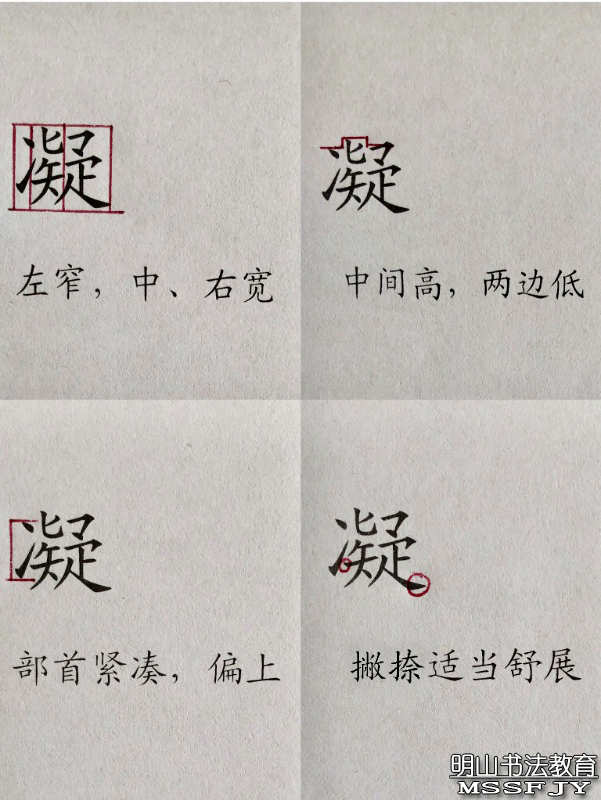 凝
左窄，中、右宽
凝
中间高，两边低
凝
部首紧凑，偏上
凝
撇捺适当舒展
明山书法教育
MSSFJY